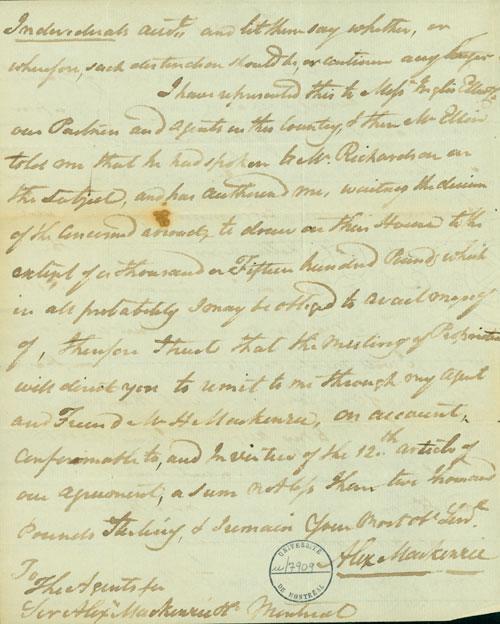 Individuals and let them say whether, or
wherefore, such distinction should be, or continue any longer
I have represented this to Messrs Inglis Ellice
our Partners and Agents in this Country, & then Mr Ellice
told me that he had spoken to Mr. Richardson on
the subject, and has authored me, waiting the decision
of the Concerned abroad, to draw on their House to the
extent of a thousand or Fifteen hundred Pounds which
in all probability I may be obliged to avail myself
of, therefore I trust that the meeting of Proprietors
will direct you to remit to me through my Agent
and Friend Mr H. Mackenzie, on account,
conformable to, and In virtue of the 12th article of
our agreement, a sum not less than two thousand
Pounds Sterling, & I remain Your Most Ob. Serv.
Alex Mackenzie
UNIVERSITÉ DE MONTRÉAL
u/7909
To
The Agents for
Sir Alexr Mackenzie & Co Montreal